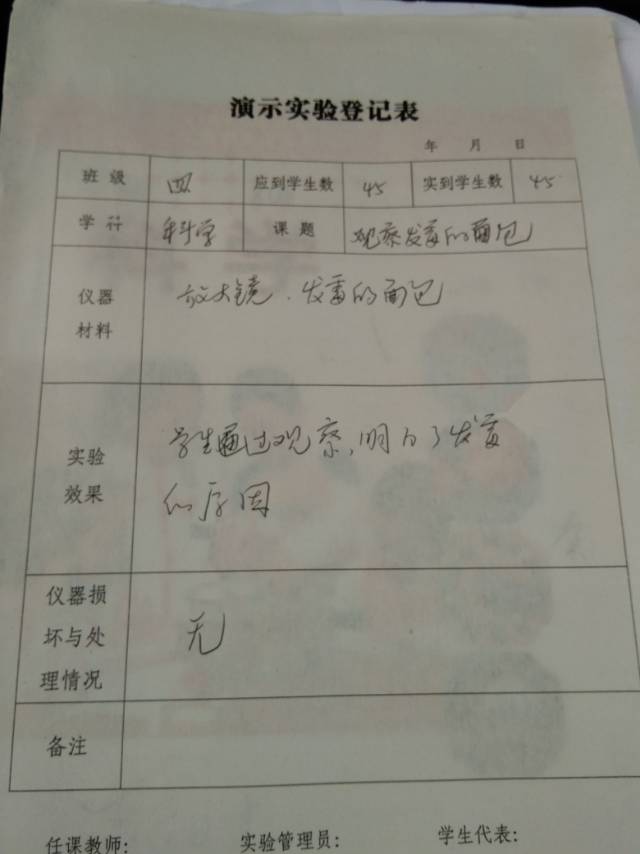 演示实验登记表
年 月 日
班 级 四 应到学生数 45 实到学生数 45
学 科 科学 课 题 观察发霉的面包
仪器
材料
放大镜、发霉的面包
实验
效果
学生通过观察,明白了发霉
的原因
仪器损
坏与处
理情况
无
备注
任课教师: 实验管理员: 学生代表: